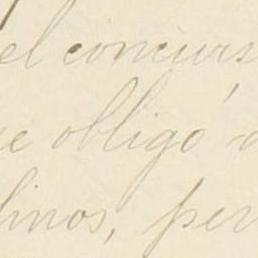 el concurs
e obligó a
linos, per